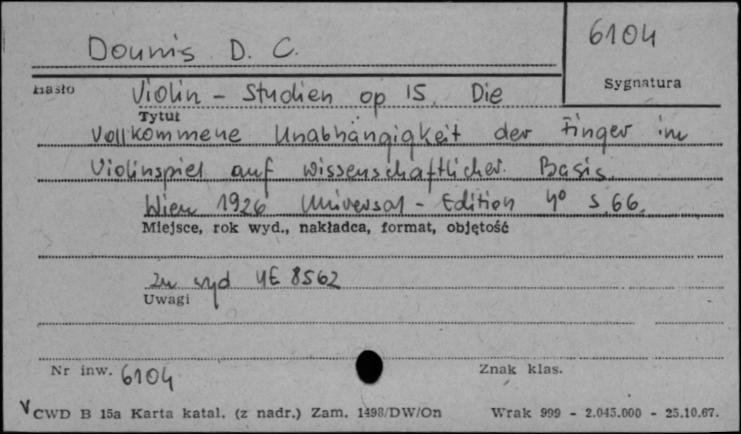 Dounis D. C.
6104
Hasło
Sygnatura
Violin - Studien op 15. Die
Tytuł
Vollkommene Unabhängigkeit der Finger im
Violinspiel auf wissenschaftlicher Basis.
Wien 1926 Universal - Edition 4° s. 66.
Miejsce, rok wyd., nakładca, format, objętość
wyd UE 8562
Uwagi
Nr inw. 6104
Znak klas.
V CWD B 15a Karta katal. (z nadr.) Zam. 1498/DW/On Wrak 999 - 2.045.000 - 25.10.67.